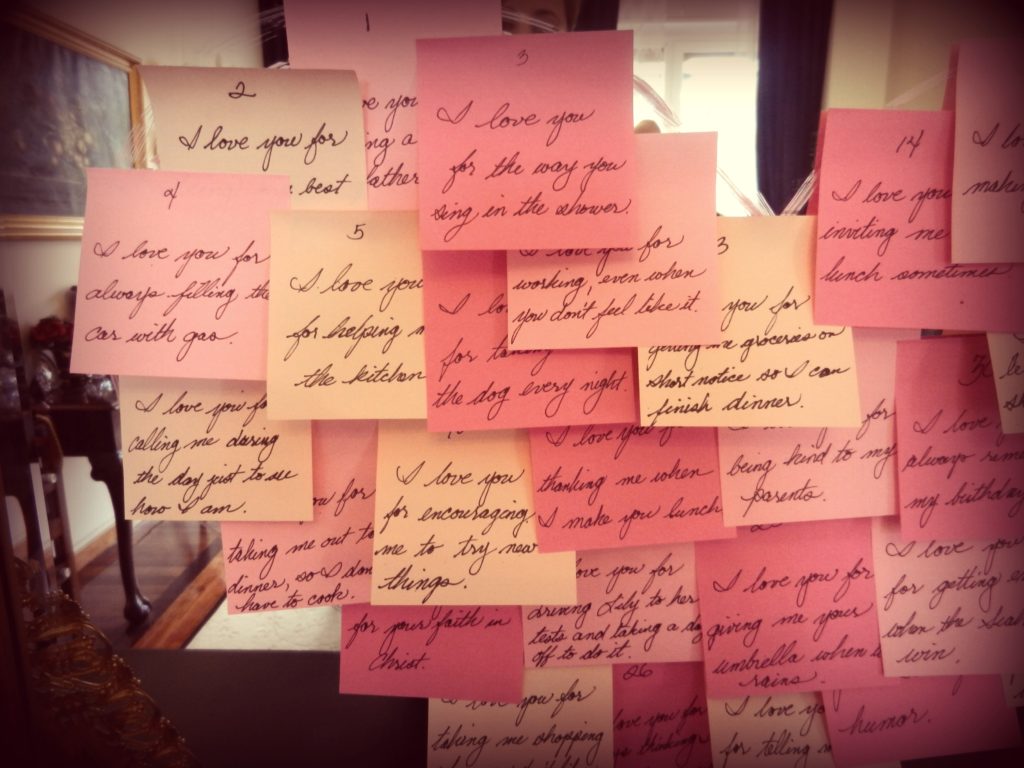 1
ve you
ing a
father
2
I love you for
best
3
I love you
for the way you
sing in the shower.
4
I love you for
always filling the
car with gas.
5
I love you
for helping
the kitchen
I lo
for
the dog every night.
I love you for
working, even when
you don't feel like it.
3
you for
getting me groceries on
short notice so I can
finish dinner.
14
I love you
inviting me
lunch sometimes
I lo
makin
I love you fo
calling me during
the day just to see
how I am.
you for
taking me out to
dinner, so I don
have to cook.
I love you
for encouraging
me to try new
things.
I love you
thanking me when
I make you lunch
for
being kind to my
parents.
3
I love
always rem
my birthday
le
for your faith in
Christ.
love you for
driving Lily to her
tests and taking a day
off to do it.
I love you for
giving me your
umbrella when
rains.
I love you
for getting
when the Seah
win.
I love you for
taking me shopping
26
love you for
thinking
I love yo
for telling
humor.